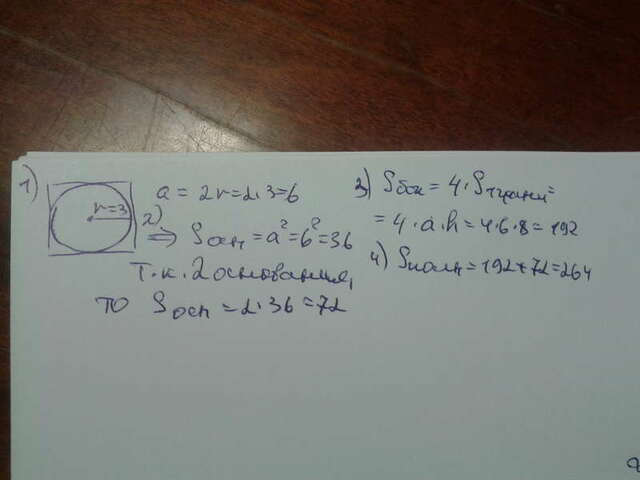 1)
r=3
a = 2r=2·3=6
2)
⇒ Sосн =a²=6²=36
Т.к. 2 основания,
то Sосн =2·36=72
3) Sбок= 4·S1грани=
= 4·a·h=4·6·8=192
4) Sполн=192+72=264